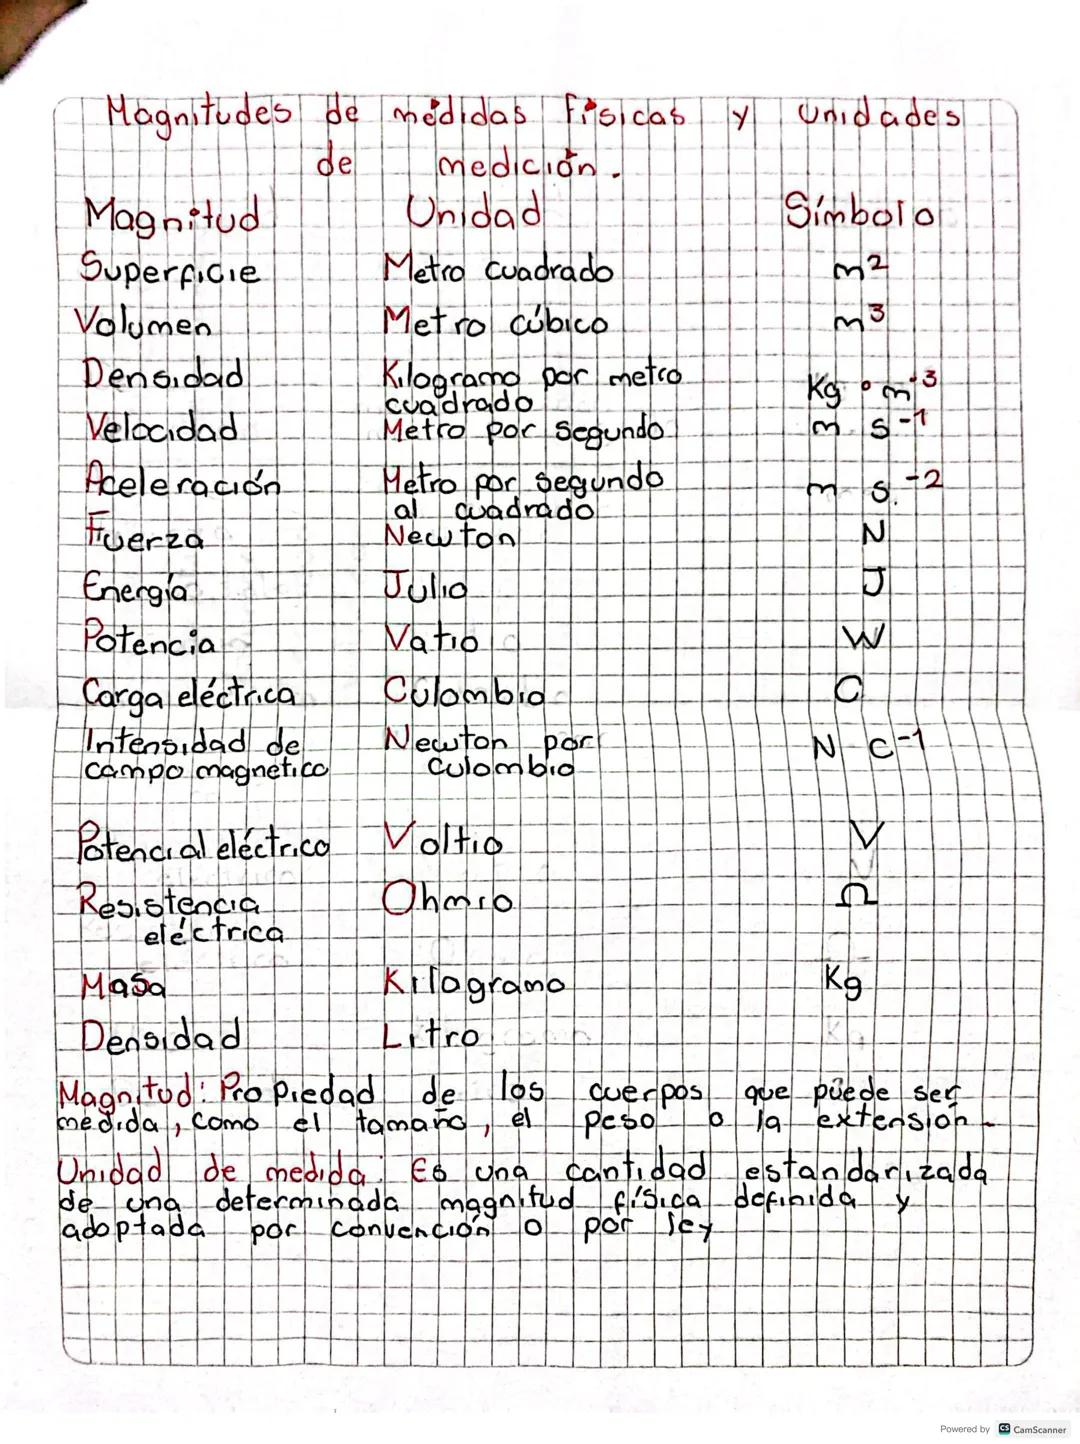 Magnitudes de medidas físicas y unidades
de medición.
Magnitud Unidad Símbolo
Superficie Metro cuadrado m²
Volumen Metro cúbico m³
Densidad Kilogramo por metro
cuadrado Kg · m⁻³
Velocidad Metro por segundo m s⁻¹
Aceleración Metro por segundo m s⁻²
al cuadrado
Fuerza Newton N
Energía Julio J
Potencia Vatio W
Carga eléctrica Culombio C
Intensidad de Newton por N C⁻¹
campo magnético culombio
Potencial eléctrico Voltio V
Resistencia Ohmio Ω
eléctrica
Masa Kilogramo Kg
Densidad Litro
Magnitud: Propiedad de los cuerpos que puede ser
medida, como el tamaño, el peso o la extensión.
Unidad de medida: Es una cantidad estandarizada
de una determinada magnitud física definida y
adoptada por convención o por ley
Powered by CS CamScanner